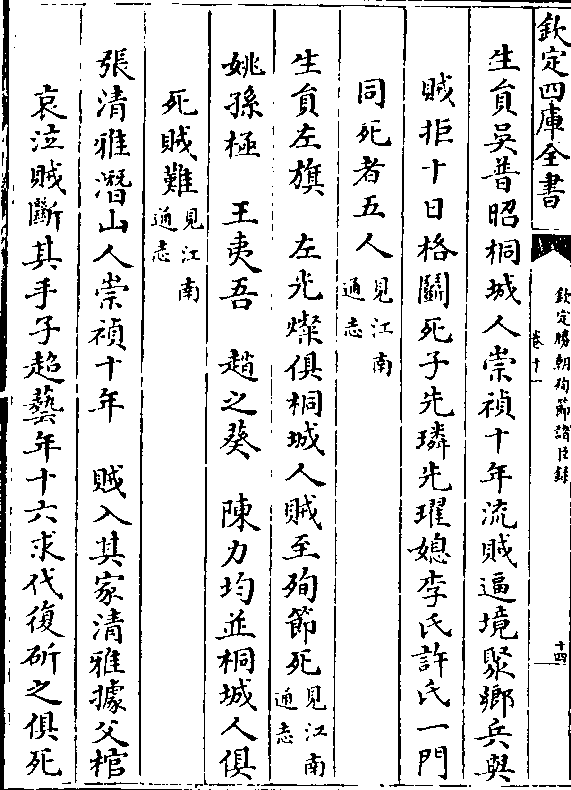 欽定四庫全書
欽定勝朝殉節諸臣録
卷十一
十四
生員吳普昭桐城人崇禎十年流賊逼境聚鄉兵與
賊拒十日格鬭死子先璘先珺媳李氏許氏一門
同死者五人見江南通志
生員左旗　左光燦俱桐城人賊至殉節死見江南通志
姚孫極　王夷吾　趙之葵　陳力均並桐城人俱
死賊難見江南通志
張清雅潛山人崇禎十年　賊入其家清雅據父棺
哀泣賊斷其手子超藝年十六求代復斫之俱死